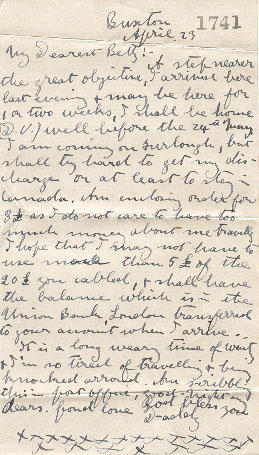 Buxton
April 23
1741
My Dearest Betty:-
A step nearer
the great objective, I arrived here
last evening & may be here for
1, or two weeks, I shall be home
(D.V.) well before the 24th May
I am coming on furlough, but
shall try hard to get my dis-
charge or at least to stay in
Canada. Am enclosing order for
3£ as I do not care to have too
much money about me travelling
I hope that I may not have to
use more than 5£ of the
20£ you cabled, & shall have
the balance which is in the
Union Bank, London transferred
to your account when I arrive.
It is a long weary time of waiting
& I'm so tired of travelling & being
knocked around. Am scribbling
this in post office, Good-night my
dears. fond love God bless you
Daddy
xxxxxxxxxxxx
xxxxxxxxxxxx